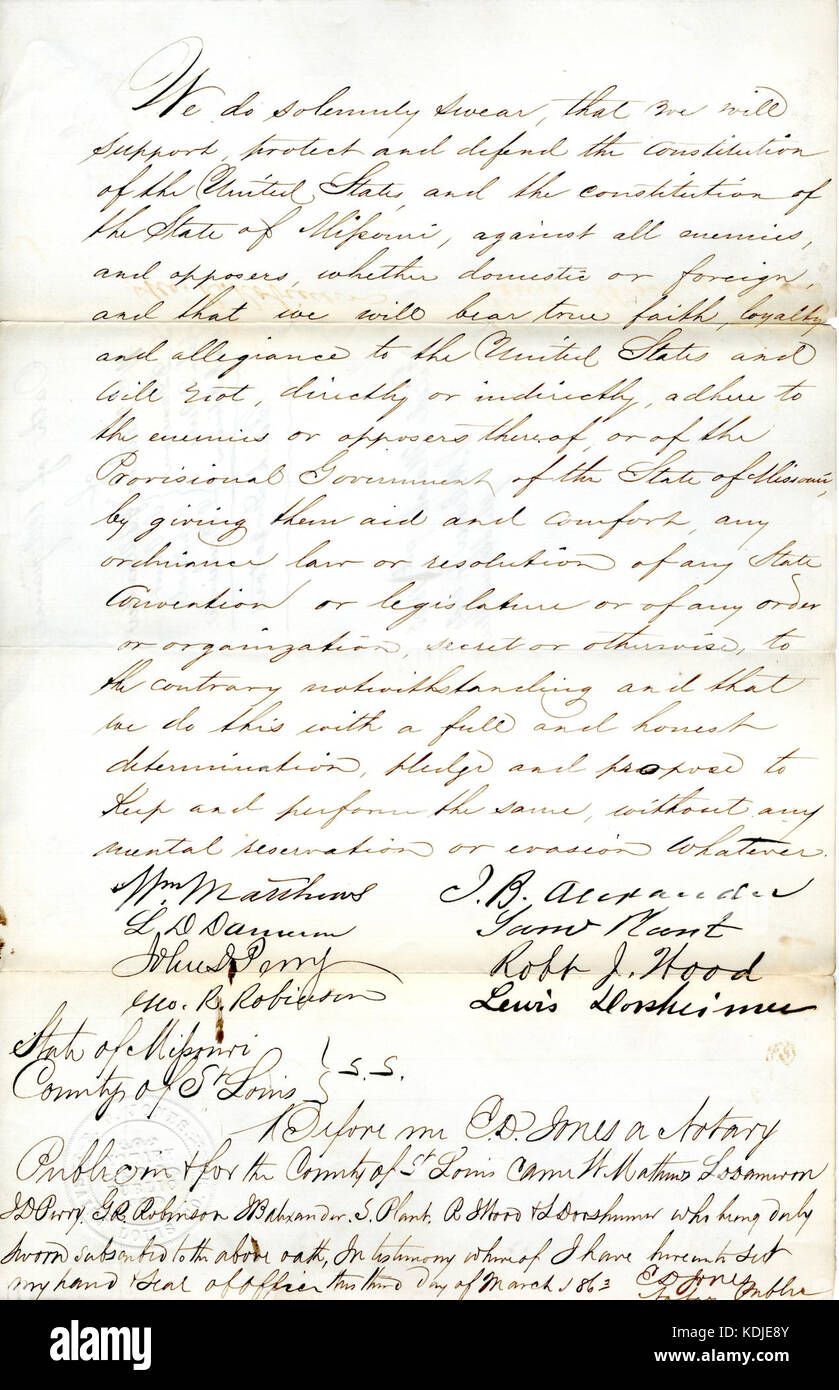 We do solemnly swear, that we will
support, protect and defend the constitution
of the United States, and the constitution of
the State of Missouri, against all enemies,
and opposers, whether domestic or foreign,
and that we will bear true faith, loyalty
and allegiance to the United States and
will not, directly or indirectly, adhere to
the enemies or opposers thereof, or of the
Provisional Government of the State of Missouri,
by giving them aid and comfort, any
ordinance law or resolution of any State
Convention or legislature or of any order
or organization, secret or otherwise, to
the contrary notwithstanding and that
we do this with a full and honest
determination, pledge and propose to
keep and perform the same, without any
mental reservation or evasion whatever.
Wm Matthews J. B. Alexander
L D Dameron Saml Plant
John D Perry Robt J. Wood
Geo. R. Robinson Lewis Dorsheimer
State of Missouri
County of St Louis } S.S.
Before me E.D. Jones a Notary
Public in & for the County of St Louis Came W. Mathews L D Dameron
J D Perry. G R Robinson J B Alexander. S. Plant. R J Wood & L Dorsheimer who being duly
sworn subscribed to the above oath, In testimony whereof I have hereunto set
my hand & seal of office this third day of March 1863 E D Jones
Notary Public
alamy
Image ID: KDJE8Y
www.alamy.com